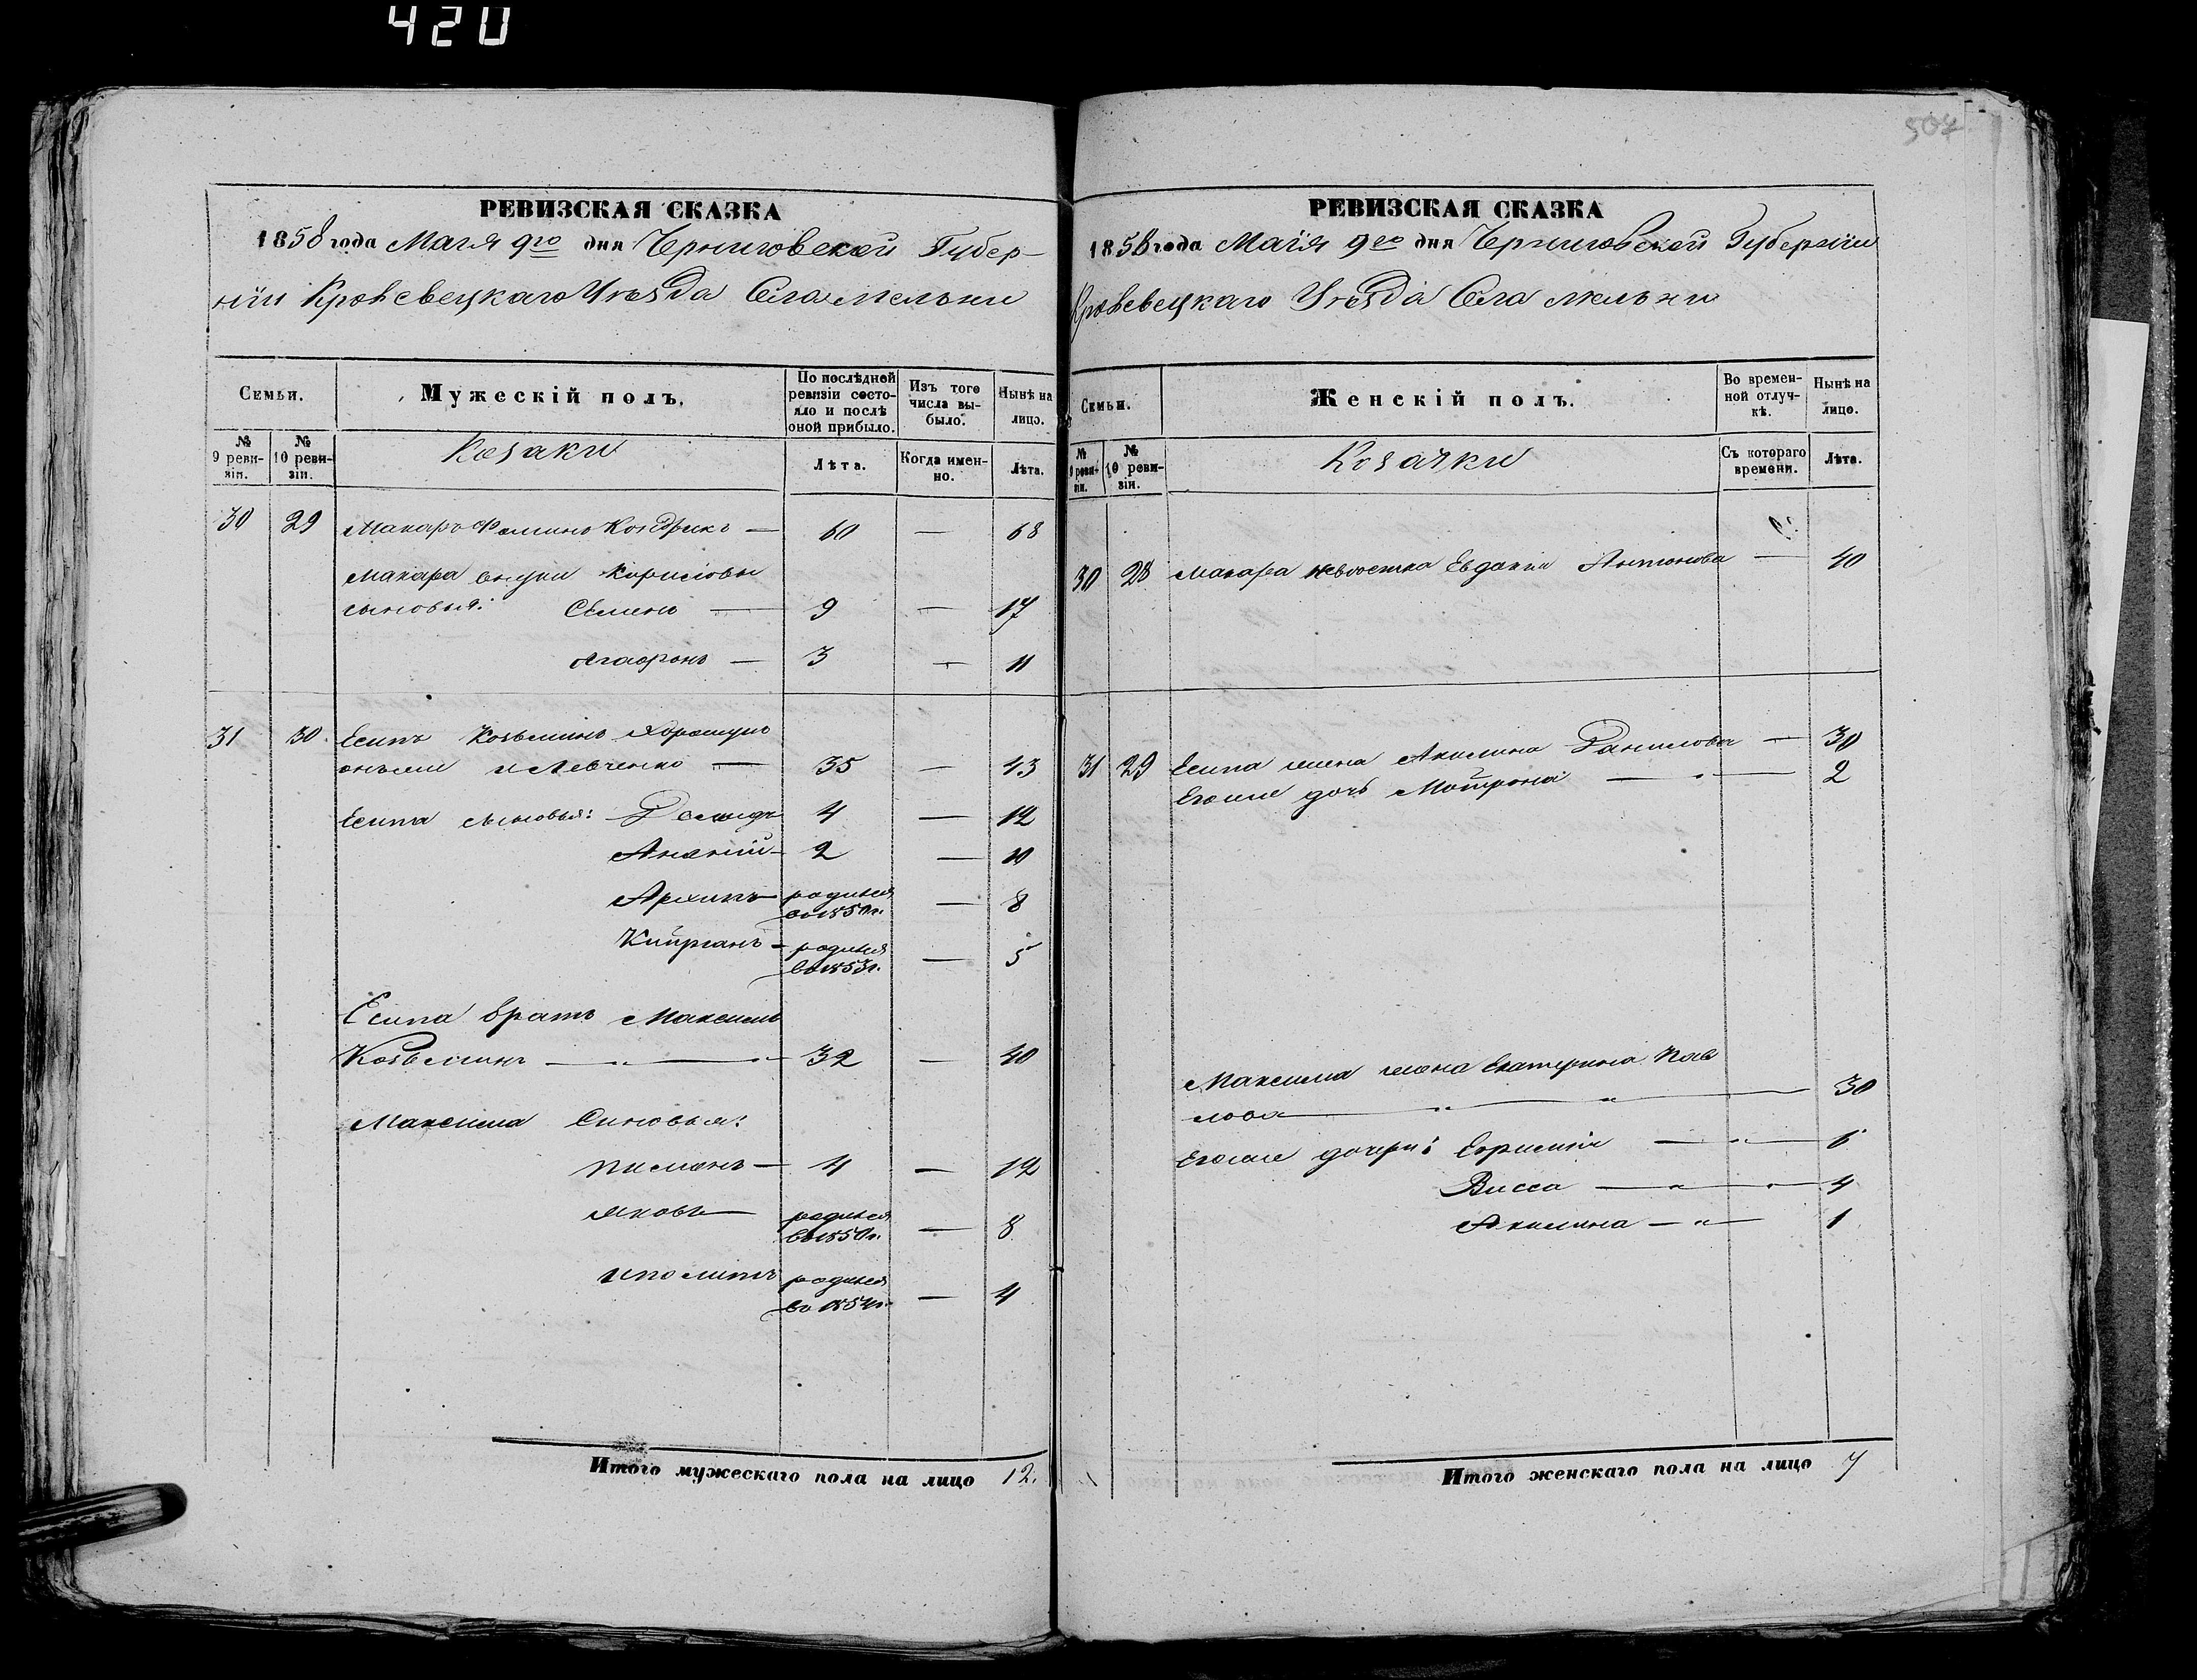 420
507
РЕВИЗСКАЯ СКАЗКА
1858 года Маія 9го дня Черниговской Губер-
ніи Кролевецкаго Уѣзда Села Мельни
Семьи.
Мужескій полъ.
По послѣдней ревизіи состо-
яло и послѣ
оной прибыло.
Изъ того
числа вы-
было.
Нынѣ на
лицо.
№
9 реви-
зіи.
№
10 реви-
зіи.
Козаки
Лѣта.
Когда имен-
но.
Лѣта.
30 29 Макаръ Фоминъ Кондрикъ — 60 — 68
Макара внуки Кириловы
сыновья: Семенъ — 9 — 17
Агафонъ — 3 — 11
31 30. Есипъ Козьминъ Хорошунъ
онъже и Левченко — 35 — 43
Есипа сыновья: Демидъ 4 — 12
Ананій — 2 — 10
Архипъ — родился
въ 1850 г. — 8
Кипріанъ — родился
въ 1853 г. — 5
Есипа братъ Максимъ
Козьминъ — „ — „ — 32 — 40
Максима Сыновья:
Пименъ — 4 — 12
Яковъ — родился
въ 1850 г. — 8
Иполитъ родился
въ 1854 г. — 4
Итого мужескаго пола на лицо 12.
РЕВИЗСКАЯ СКАЗКА
1858 года Маія 9го дня Черниговской Губерніи
Кролевецкаго Уѣзда Села Мельни
Семьи.
Женскій полъ.
Во времен-
ной отлуч-
кѣ.
Нынѣ на
лицо.
№
9 реви-
зіи.
№
10 реви-
зіи.
Козачки
Съ котораго
времени.
Лѣта.
30 28 Макара невѣстка Евдокія Антонова — 40
31 29 Есипа жена Акилина Данилова — 30
Егоже дочь Мотрона — „ — 2
Максима жена Екатерина Пав
лова — „ — „ — 30
Егоже дочери: Ефимія — „ — 6
Васса — „ — „ — 4
Акилина — „ — 1
Итого женскаго пола на лицо 7